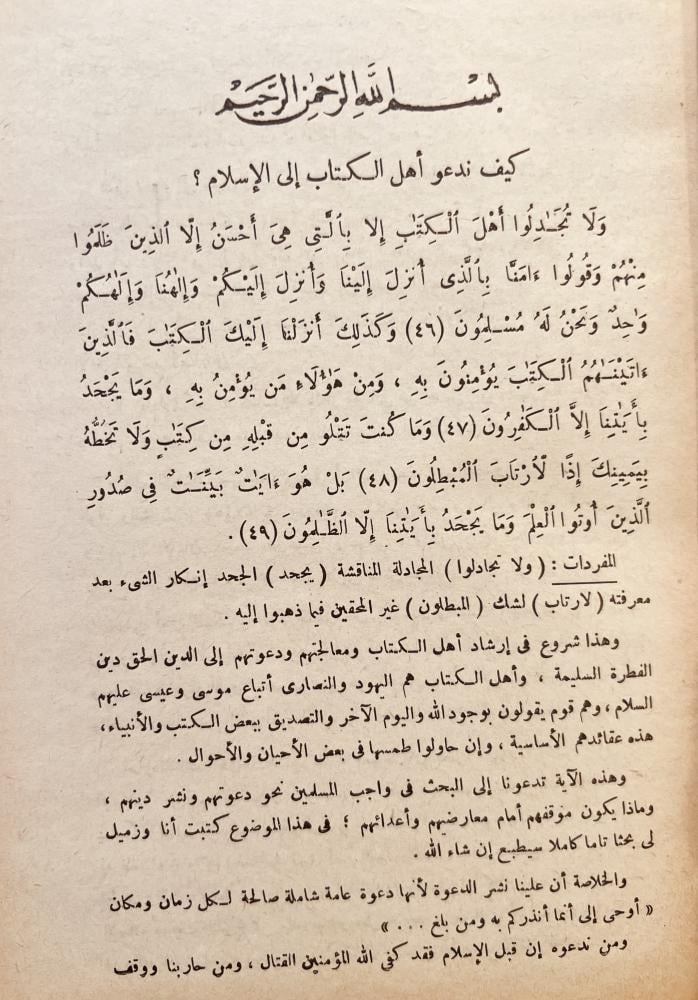 بسم الله الرحمن الرحيم
كيف ندعو أهل الكتاب إلى الإسلام ؟
وَلَا تُجَـٰدِلُوا أَهْلَ ٱلْكِتَـٰبِ إِلا بِٱلَّتِى هِىَ أَحْسَنُ إِلَّا ٱلذِينَ ظَلَمُوا
مِنْهُمْ وَقُولُوا ءَامَنَّا بِٱلَّذِى أُنزِلَ إِلَيْنَا وَأُنزِلَ إِلَيْكُمْ وَإِلَٰهُنَا وَإِلَٰهُكُمْ
وَٰحِدٌ وَنَحْنُ لَهُ مُسْلِمُونَ (٤٦) وَكَذَلِكَ أَنزَلْنَا إِلَيْكَ ٱلْكِتَـٰبَ فَٱلَّذِينَ
ءَاتَيْنَـٰهُمُ ٱلْكِتَـٰبَ يُؤْمِنُونَ بِهِ ، وَمِنْ هَـٰؤُلَاءِ مَن يُؤْمِنُ بِهِ ، وَمَا يَجْحَدُ
بِأَيَـٰتِنَا إِلَّا ٱلْكَـٰفِرُونَ (٤٧) وَمَا كُنتَ تَتْلُو مِن قَبْلِهِ مِن كِتَـٰبٍ وَلَا تَخُطُّهُ
بِيَمِينِكَ إِذًا لَّارْتَابَ ٱلْمُبْطِلُونَ (٤٨) بَلْ هُوَ ءَايَـٰتٌ بَيِّنَـٰتٌ فِى صُدُورِ
ٱلَّذِينَ أُوتُوا ٱلْعِلْمَ وَمَا يَجْحَدُ بِأَيَـٰتِنَا إِلَّا ٱلظَّـٰلِمُونَ (٤٩) .
المفردات : ( ولا تجادلوا ) المجادلة المناقشة ( يجحد ) الجحد إنكار الشىء بعد
معرفته ( لارتاب ) لشك ( المبطلون ) غير المحقين فيما ذهبوا إليه .
وهذا شروع فى إرشاد أهل الكتاب ومعالجتهم ودعوتهم إلى الدين الحق دين
الفطرة السليمة ، وأهل الكتاب هم اليهود والنصارى أتباع موسى وعيسى عليهم
السلام ، وهم قوم يقولون بوجود الله واليوم الآخر والتصديق ببعض الكتب والأنبياء،
هذه عقائدهم الأساسية ، وإن حاولوا طمسها فى بعض الأحيان والأحوال .
وهذه الآية تدعونا إلى البحث فى واجب المسلمين نحو دعوتهم ونشر دينهم ،
وماذا يكون موقفهم أمام معارضيهم وأعدائهم ؛ فى هذا الموضوع كتبت أنا وزميل
لى بحثا تاما كاملا سيطبع إن شاء الله .
والخلاصة أن علينا نشر الدعوة لأنها دعوة عامة شاملة صالحة لكل زمان ومكان
« أوحى إلى أنما أنذركم به ومن بلغ . . . »
ومن ندعوه إن قبل الإسلام فقد كفى الله المؤمنين القتال ، ومن حاربنا ووقف